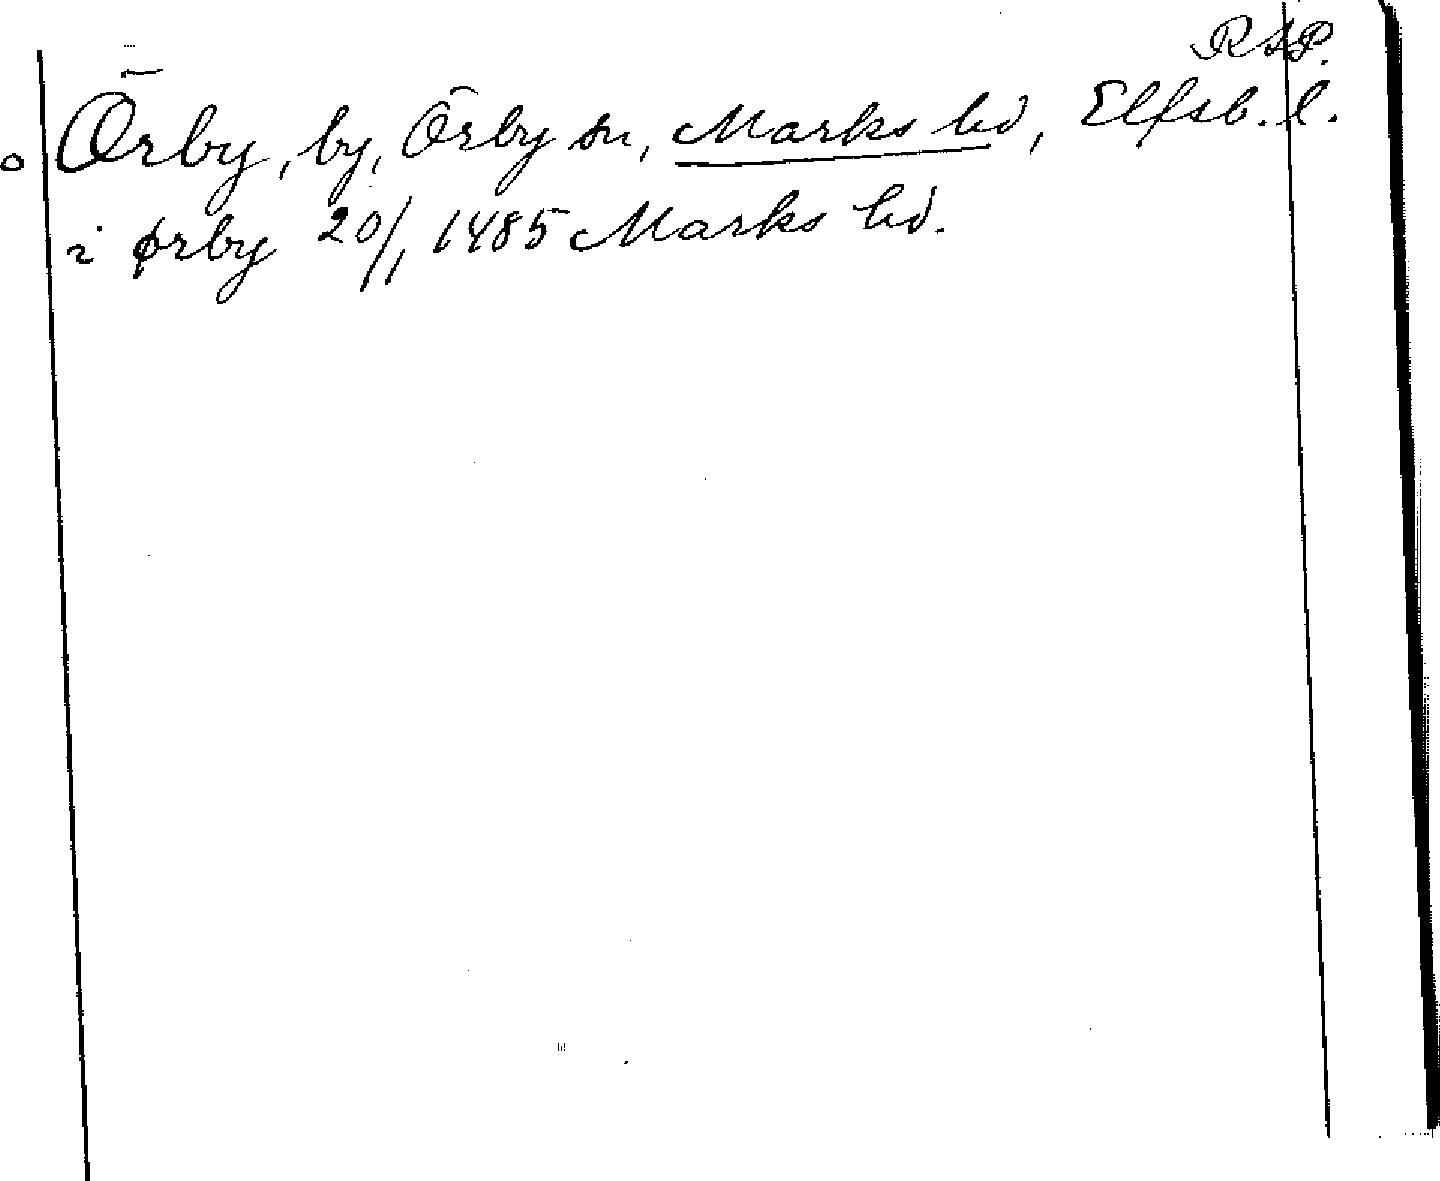 RAP.
Örby, by, Örby sn, Marks hd, Elfsb. l.
i ørby 20/1 1485 Marks hd.